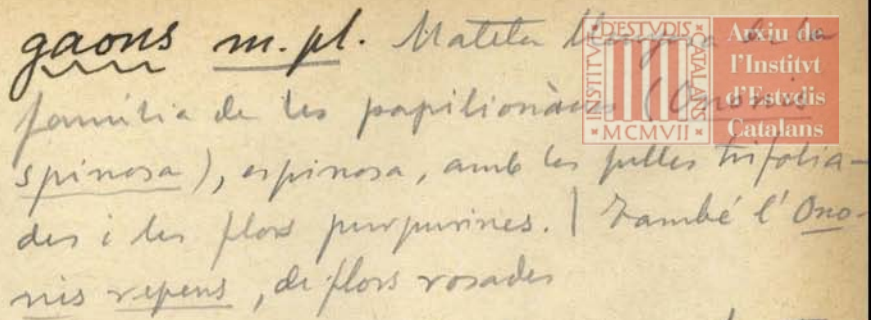 gaons m. pl. Mateta llenyosa de la
família de les papilionàcies (Ononis
spinosa), espinosa, amb les fulles trifolia-
des i les flors purpurines. | També l'Ono-
nis repens, de flors rosades
INSTITVT D'ESTVDIS CATALANS
MCMVII
Arxiu de
l'Institvt
d'Estvdis
Catalans